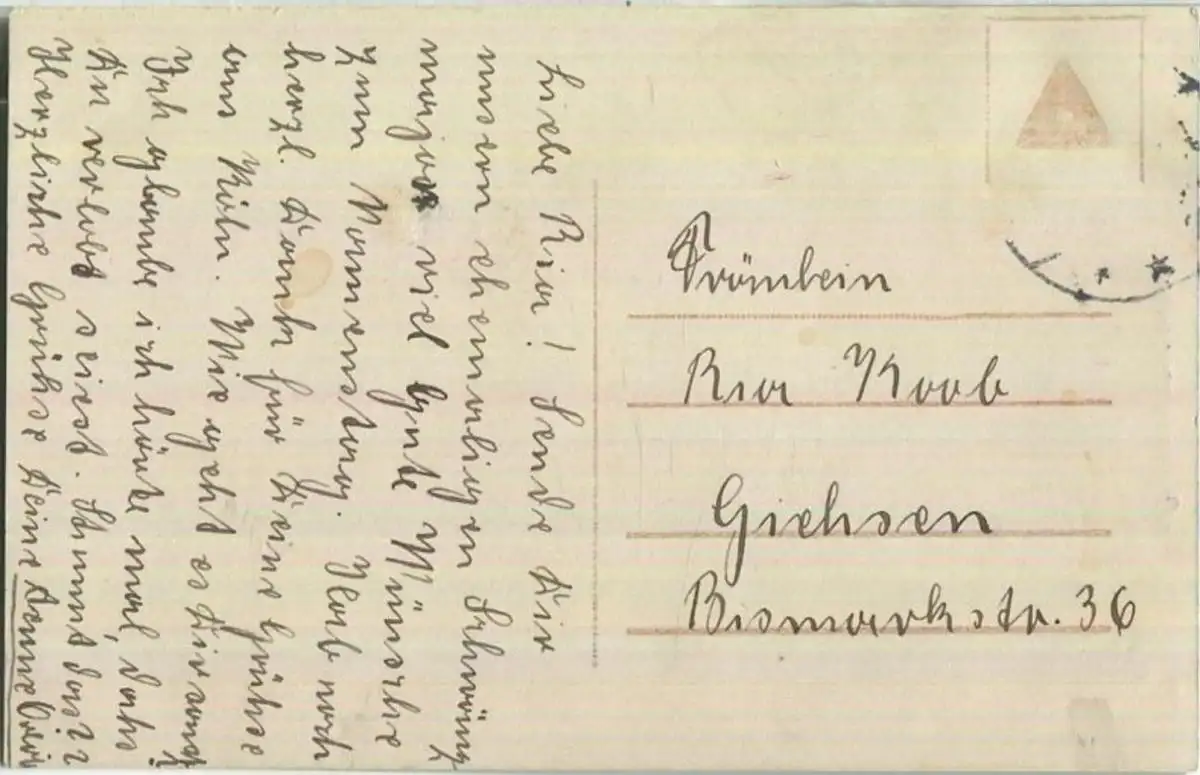 Liebe Ria! Sende Dir
unsern ehemaligen
major viel gute Wünsche
zum Namenstag. Hab noch
herzl. Dank für Deine Grüße
aus Köln. Wie geht es Dir sonst?
Ich glaube ich hörte mal, daß
Du verlobt seiest. Stimmt das??
Herzliche Grüße Deine
Fräulein
Ria Koob
Gießen
Bismarkstr. 36